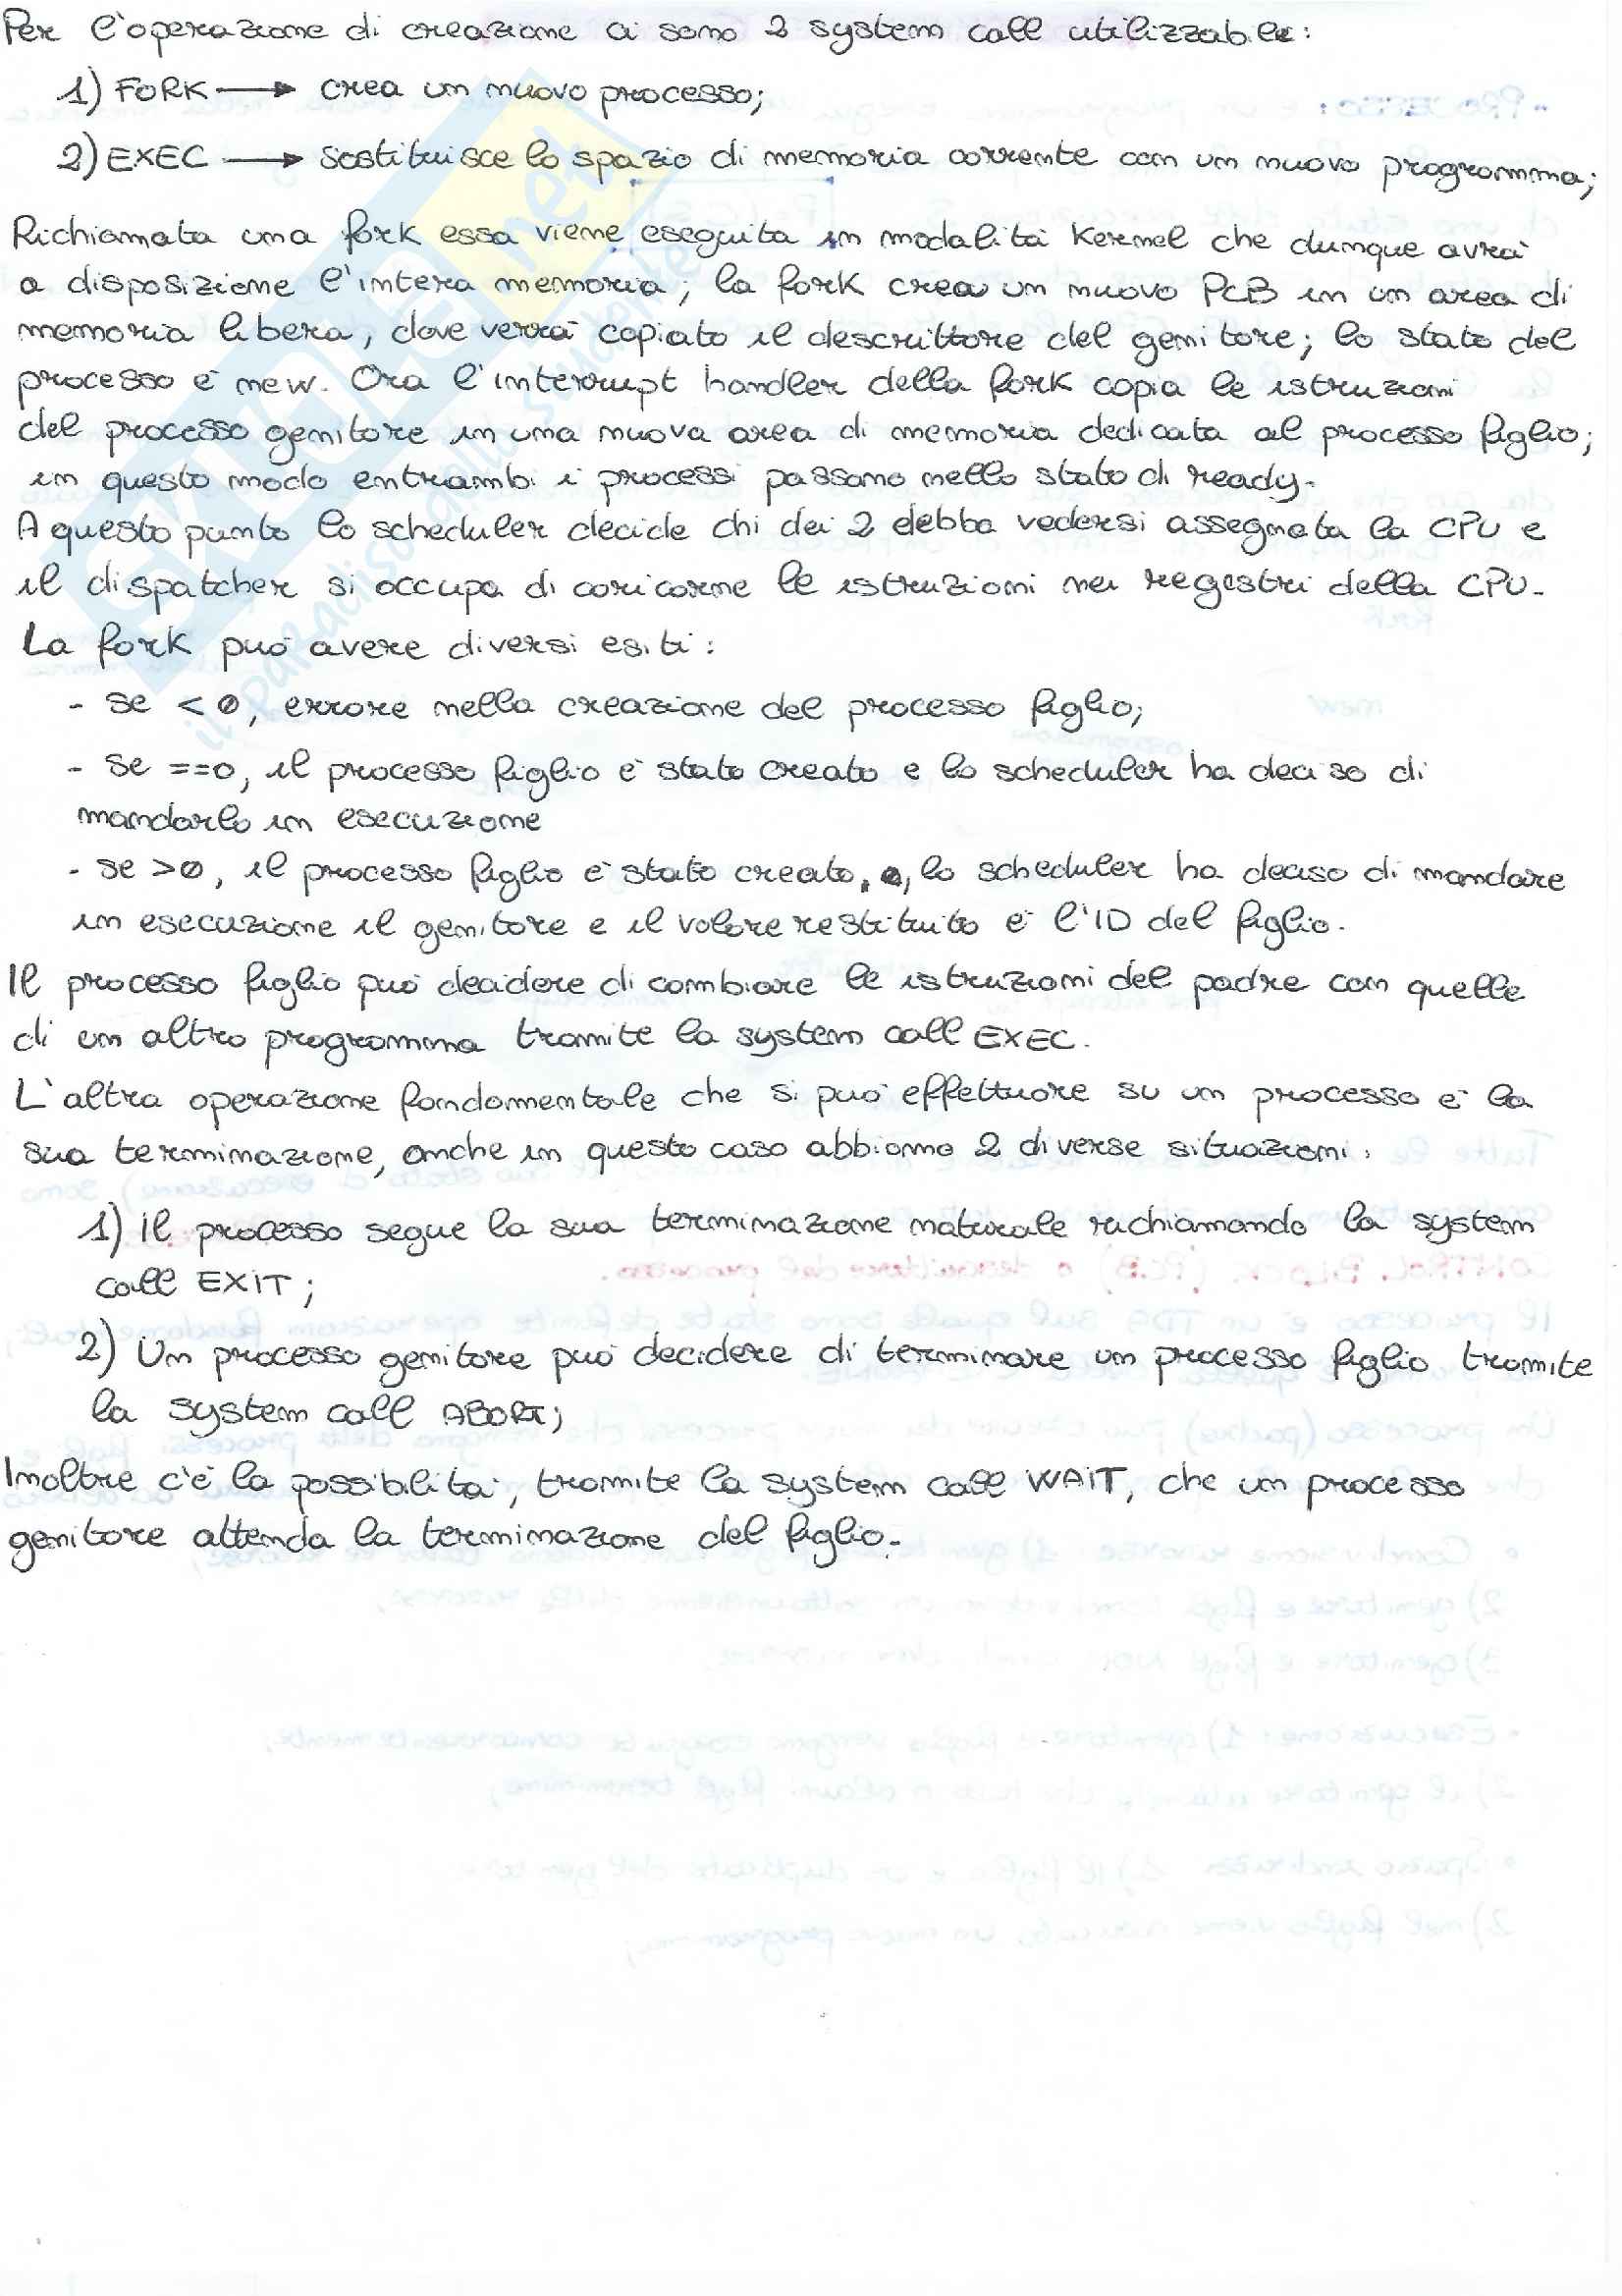 Per l'operazione di creazione ci sono 2 system call utilizzabili:
1) FORK → crea un nuovo processo;
2) EXEC → Sostituisce lo spazio di memoria corrente con un nuovo programma;
Richiamata una fork essa viene eseguita in modalità Kernel che dunque avrà
a disposizione l'intera memoria; la fork crea un nuovo PCB in un area di
memoria libera, dove verrà copiato il descrittore del genitore; lo stato del
processo è new. Ora l'interrupt handler della fork copia le istruzioni
del processo genitore in una nuova area di memoria dedicata al processo figlio;
in questo modo entrambi i processi passano nello stato di ready.
A questo punto lo scheduler decide chi dei 2 debba vedersi assegnata la CPU e
il dispatcher si occupa di caricarne le istruzioni nei regestri della CPU.
La fork può avere diversi esiti:
- se < 0, errore nella creazione del processo figlio;
- se ==0, il processo figlio è stato creato e lo scheduler ha deciso di
mandarlo in esecuzione
- se >0, il processo figlio è stato creato, lo scheduler ha deciso di mandare
in esecuzione il genitore e il valore restituito è l'ID del figlio.
Il processo figlio può decidere di cambiare le istruzioni del padre con quelle
di un altro programma tramite la system call EXEC.
L'altra operazione fondamentale che si può effettuare su un processo è la
sua terminazione, anche in questo caso abbiamo 2 diverse situazioni:
1) Il processo segue la sua terminazione naturale richiamando la system
call EXIT;
2) Un processo genitore può decidere di terminare un processo figlio tramite
la system call ABORT;
Inoltre c'è la possibilità, tramite la system call WAIT, che un processo
genitore attenda la terminazione del figlio.
SKUOLA.net
il paradiso dello studente